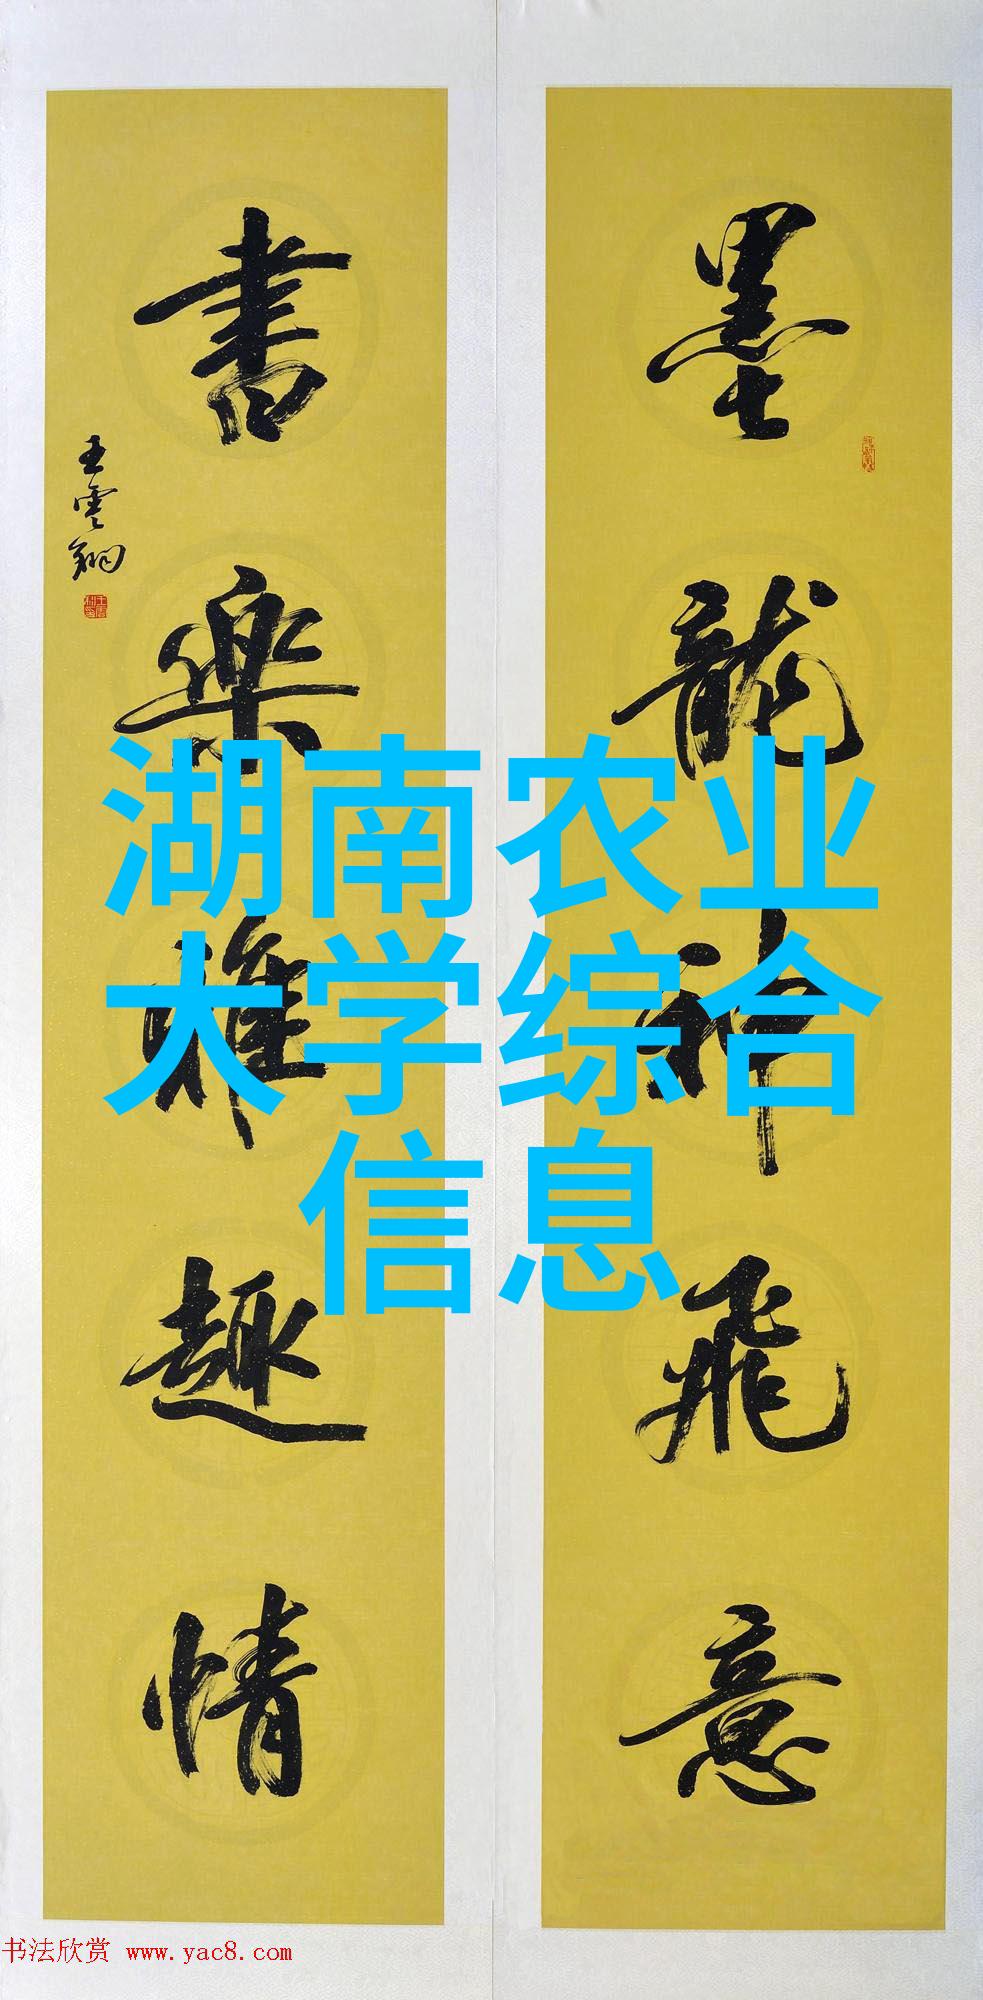 墨龍神飛意
書樂雅趣情
王雲翔
湖南农业
大学综合
信息
书法欣赏 www.yac8.com